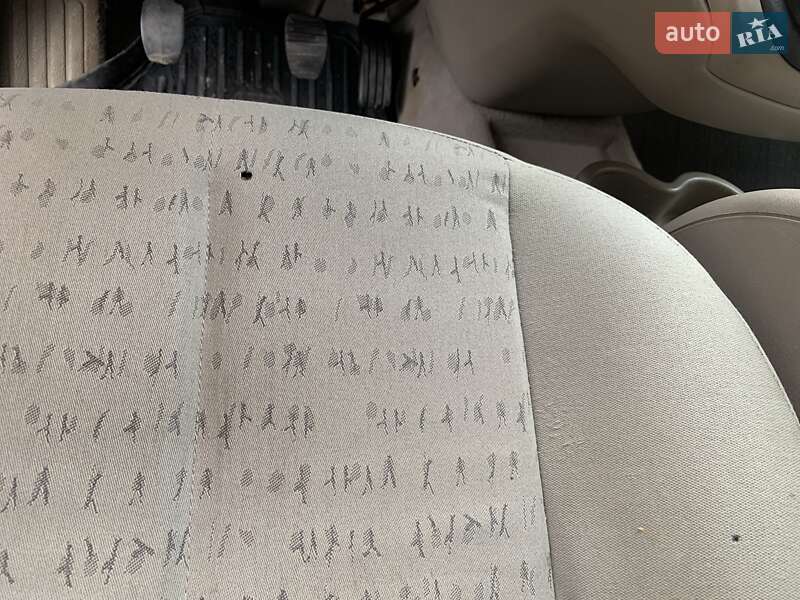 auto RIA
.com